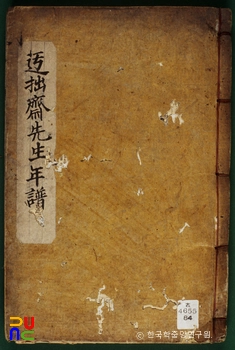 迃拙齋先生年譜
4655
84
© 한국학중앙연구원